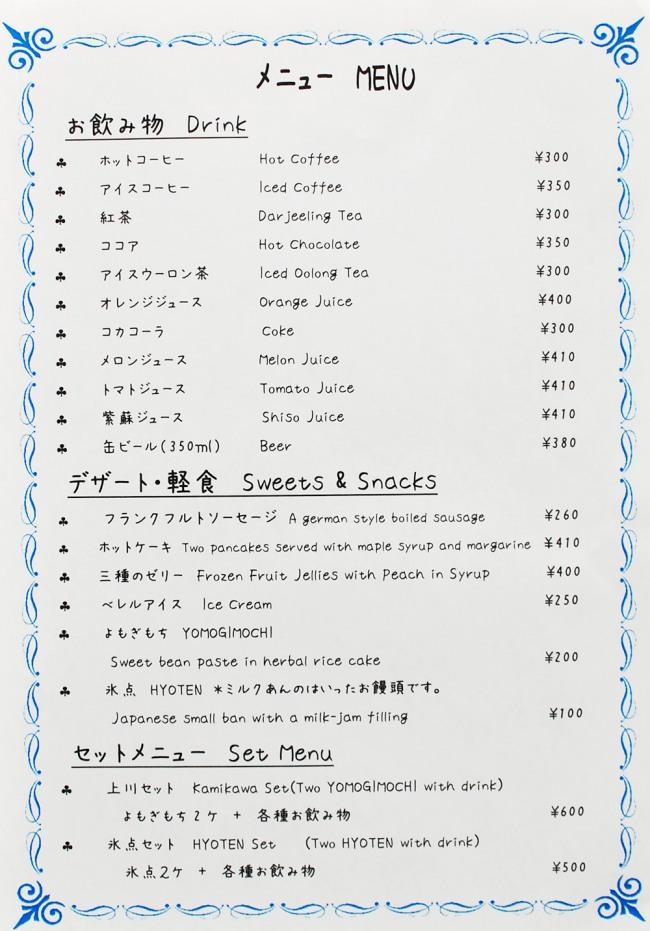 メニュー MENU
お飲み物 Drink
♣ ホットコーヒー Hot Coffee ¥300
♣ アイスコーヒー Iced Coffee ¥350
♣ 紅茶 Darjeeling Tea ¥300
♣ ココア Hot Chocolate ¥350
♣ アイスウーロン茶 Iced Oolong Tea ¥300
♣ オレンジジュース Orange Juice ¥400
♣ コカコーラ Coke ¥300
♣ メロンジュース Melon Juice ¥410
♣ トマトジュース Tomato Juice ¥410
♣ 紫蘇ジュース Shiso Juice ¥410
♣ 缶ビール(350ml) Beer ¥380
デザート・軽食 Sweets & Snacks
♣ フランクフルトソーセージ A german style boiled sausage ¥260
♣ ホットケーキ Two pancakes served with maple syrup and margarine ¥410
♣ 三種のゼリー Frozen Fruit Jellies with Peach in Syrup ¥400
♣ ベレルアイス Ice Cream ¥250
♣ よもぎもち YOMOGIMOCHI
Sweet bean paste in herbal rice cake ¥200
♣ 氷点 HYOTEN *ミルクあんのはいったお饅頭です。
Japanese small ban with a milk-jam filling ¥100
セットメニュー Set Menu
♣ 上川セット Kamikawa Set(Two YOMOGIMOCHI with drink)
よもぎもち2ケ + 各種お飲み物 ¥600
♣ 氷点セット HYOTEN Set (Two HYOTEN with drink)
氷点2ケ + 各種お飲み物 ¥500